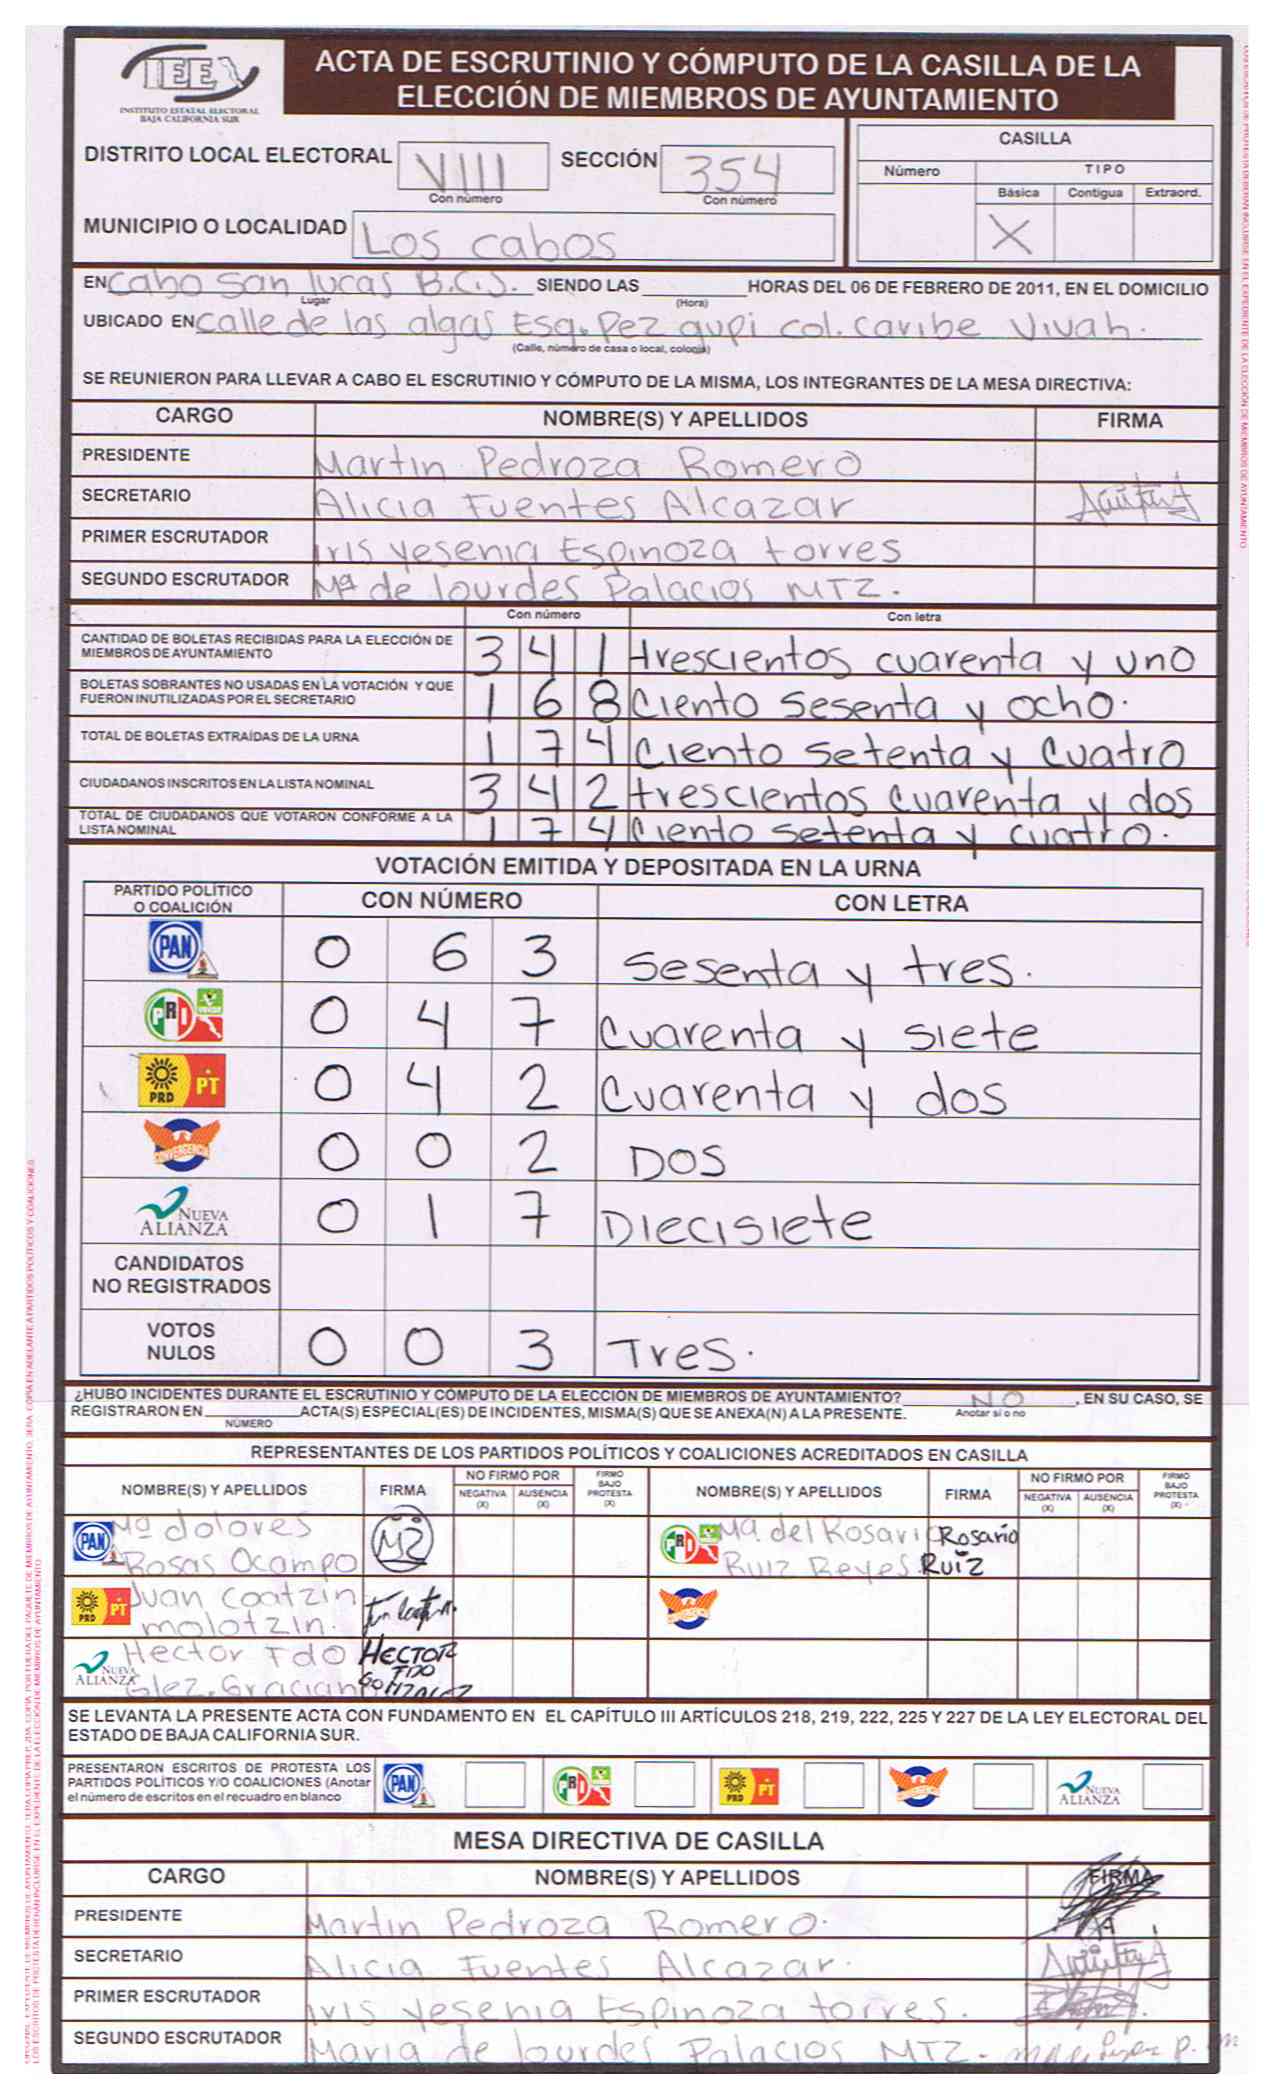 IEE
INSTITUTO ESTATAL ELECTORAL
BAJA CALIFORNIA SUR
ACTA DE ESCRUTINIO Y CÓMPUTO DE LA CASILLA DE LA
ELECCIÓN DE MIEMBROS DE AYUNTAMIENTO
DISTRITO LOCAL ELECTORAL VIII SECCIÓN 354
Con número Con número
MUNICIPIO O LOCALIDAD Los cabos
CASILLA
Número TIPO
Básica Contigua Extraord.
X
EN Cabo San lucas B.C.S. SIENDO LAS HORAS DEL 06 DE FEBRERO DE 2011, EN EL DOMICILIO
Lugar (Hora)
UBICADO EN Calle de las algas Esq. Pez gupi col. caribe Vivah.
(Calle, número de casa o local, colonia)
SE REUNIERON PARA LLEVAR A CABO EL ESCRUTINIO Y CÓMPUTO DE LA MISMA, LOS INTEGRANTES DE LA MESA DIRECTIVA:
CARGO NOMBRE(S) Y APELLIDOS FIRMA
PRESIDENTE Martin Pedroza Romero
SECRETARIO Alicia Fuentes Alcazar
PRIMER ESCRUTADOR Iris yesenia Espinoza torres
SEGUNDO ESCRUTADOR Mª de lourdes Palacios MTZ.
Con número Con letra
CANTIDAD DE BOLETAS RECIBIDAS PARA LA ELECCIÓN DE
MIEMBROS DE AYUNTAMIENTO 3 4 1 trescientos cuarenta y uno
BOLETAS SOBRANTES NO USADAS EN LA VOTACIÓN Y QUE
FUERON INUTILIZADAS POR EL SECRETARIO 1 6 8 Ciento Sesenta y ocho.
TOTAL DE BOLETAS EXTRAÍDAS DE LA URNA 1 7 4 Ciento setenta y Cuatro
CIUDADANOS INSCRITOS EN LA LISTA NOMINAL 3 4 2 trescientos cuarenta y dos
TOTAL DE CIUDADANOS QUE VOTARON CONFORME A LA
LISTA NOMINAL 1 7 4 Ciento setenta y cuatro.
VOTACIÓN EMITIDA Y DEPOSITADA EN LA URNA
PARTIDO POLÍTICO
O COALICIÓN CON NÚMERO CON LETRA
PAN 0 6 3 Sesenta y tres.
PRI VERDE 0 4 7 Cuarenta y siete
PRD PT 0 4 2 Cuarenta y dos
CONVERGENCIA 0 0 2 DOS
NUEVA
ALIANZA 0 1 7 Diecisiete
CANDIDATOS
NO REGISTRADOS
VOTOS
NULOS 0 0 3 Tres.
¿HUBO INCIDENTES DURANTE EL ESCRUTINIO Y CÓMPUTO DE LA ELECCIÓN DE MIEMBROS DE AYUNTAMIENTO? NO , EN SU CASO, SE
REGISTRARON EN ACTA(S) ESPECIAL(ES) DE INCIDENTES, MISMA(S) QUE SE ANEXA(N) A LA PRESENTE. Anotar sí o no
NÚMERO
REPRESENTANTES DE LOS PARTIDOS POLÍTICOS Y COALICIONES ACREDITADOS EN CASILLA
NOMBRE(S) Y APELLIDOS FIRMA NO FIRMÓ POR NEGATIVA (X) AUSENCIA (X) FIRMO BAJO PROTESTA (X) NOMBRE(S) Y APELLIDOS FIRMA NO FIRMÓ POR NEGATIVA (X) AUSENCIA (X) FIRMO BAJO PROTESTA (X)
PAN Mª dolores MZ PRI Mª. del Rosario Rosario
Rosas Ocampo Ruiz Reyes. Ruiz
PRD PT Juan Coatzin
molotzin.
NUEVA ALIANZA Hector Fdo HECTOR
Glez. Graciano FDO
GONZALEZ
SE LEVANTA LA PRESENTE ACTA CON FUNDAMENTO EN EL CAPÍTULO III ARTÍCULOS 218, 219, 222, 225 Y 227 DE LA LEY ELECTORAL DEL
ESTADO DE BAJA CALIFORNIA SUR.
PRESENTARON ESCRITOS DE PROTESTA LOS
PARTIDOS POLÍTICOS Y/O COALICIONES (Anotar
el número de escritos en el recuadro en blanco
PAN PRI PRD PT CONVERGENCIA NUEVA ALIANZA
MESA DIRECTIVA DE CASILLA
CARGO NOMBRE(S) Y APELLIDOS FIRMA
PRESIDENTE Martin Pedroza Romero.
SECRETARIO Alicia Fuentes Alcazar.
PRIMER ESCRUTADOR Iris yesenia Espinoza torres.
SEGUNDO ESCRUTADOR Maria de lourdes Palacios MTZ.